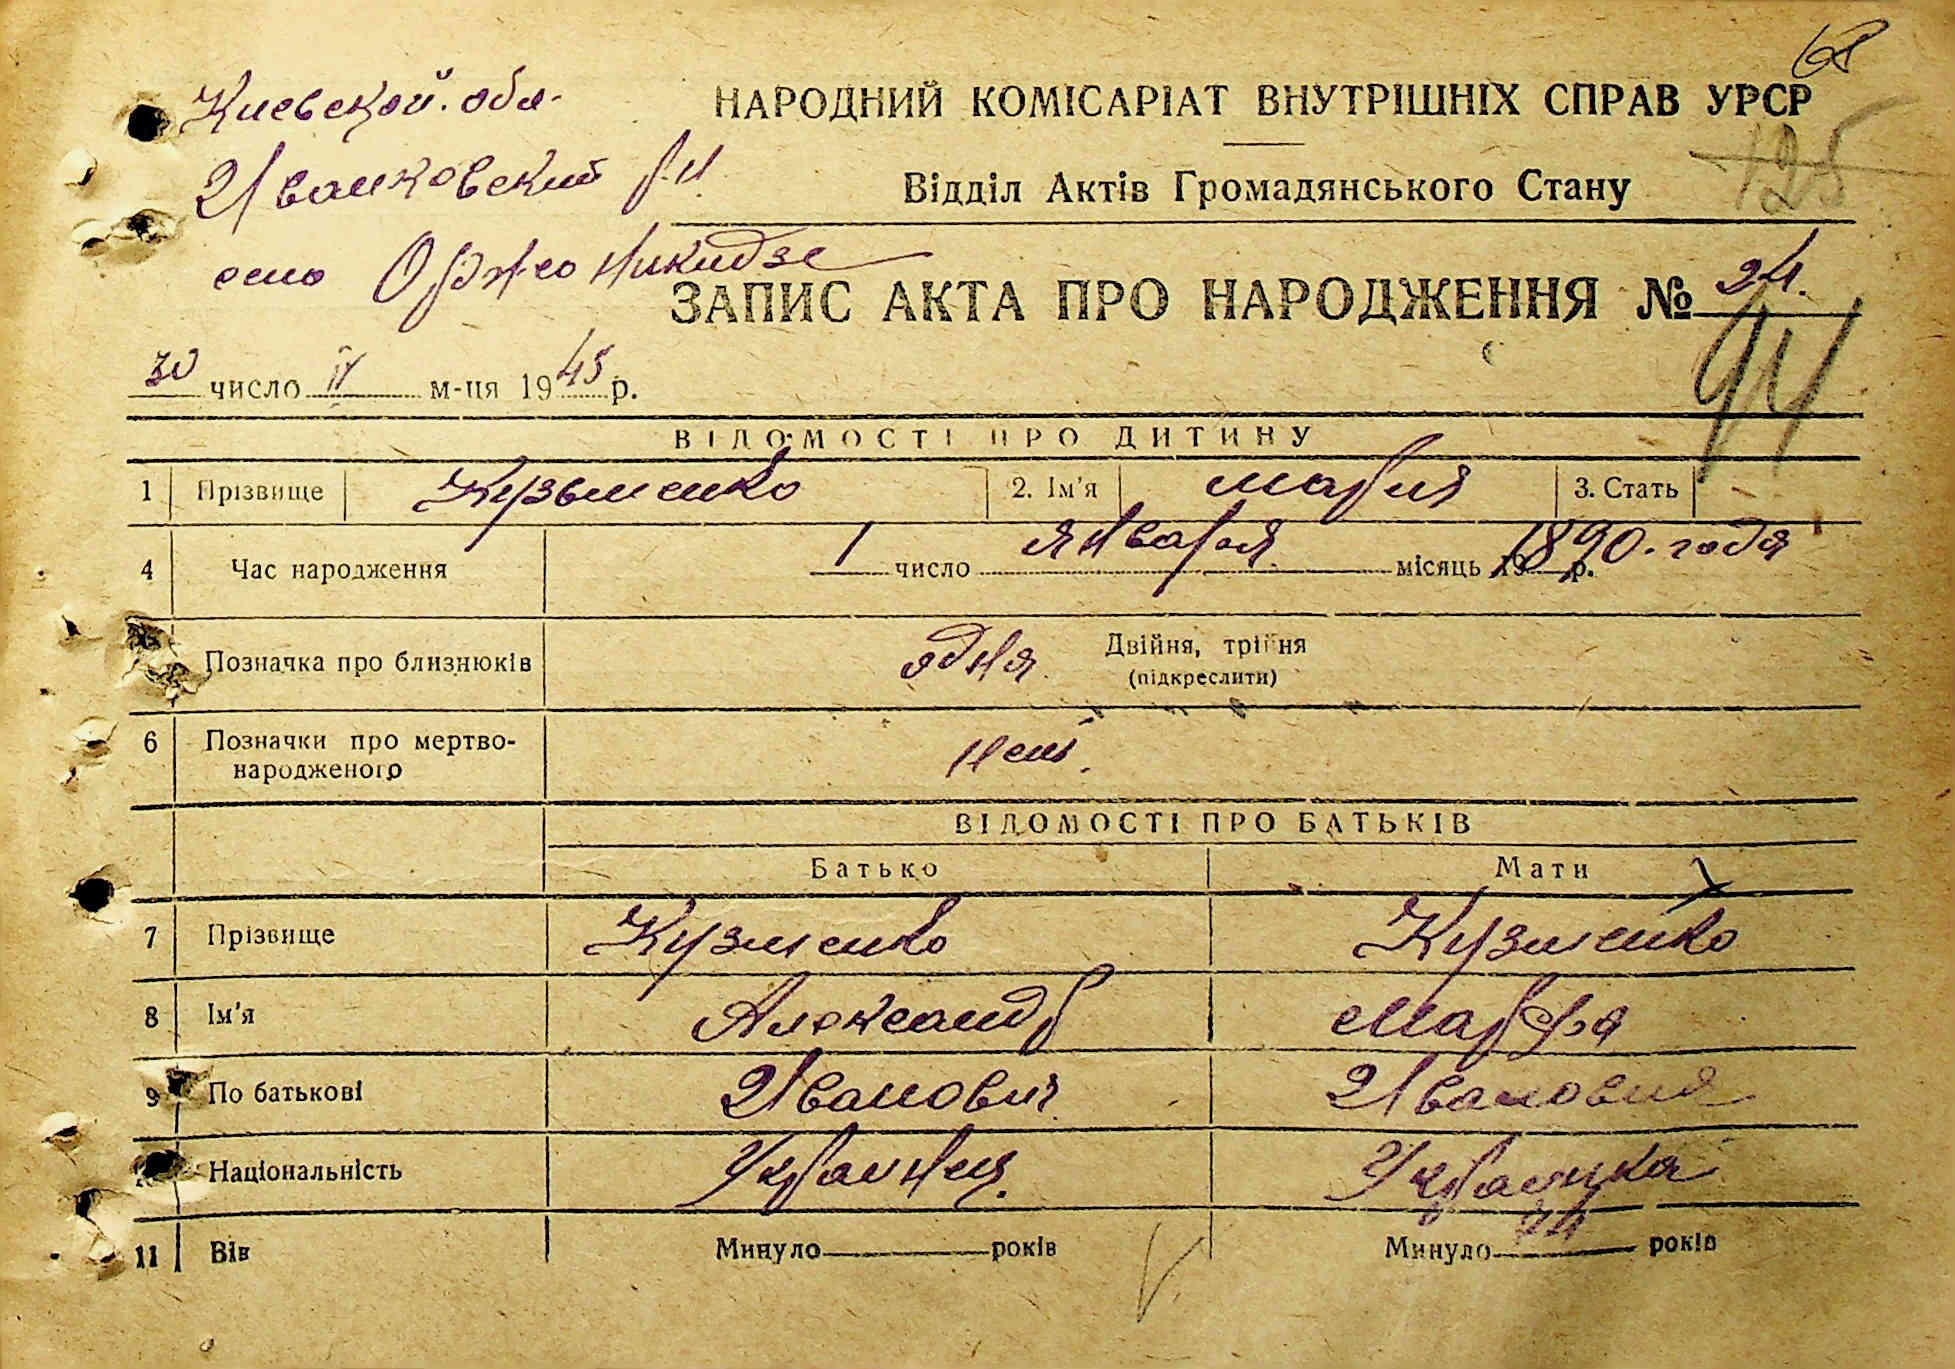 68
Киевской. обл.
НАРОДНИЙ КОМІСАРІАТ ВНУТРІШНІХ СПРАВ УРСР
125
Иванковский р-н
Відділ Актів Громадянського Стану
село Орджоникидзе
ЗАПИС АКТА ПРО НАРОДЖЕННЯ № 24.
94
30 число IV м-ця 1945 р.
ВІДОМОСТІ ПРО ДИТИНУ
1 Прізвище Кузьменко 2. Ім'я Мария 3. Стать
4 Час народження 1 число января місяць 1890. года р.
Позначка про близнюків одня Двійня, трійня
(підкреслити)
6 Позначки про мертво-
народженого нет.
ВІДОМОСТІ ПРО БАТЬКІВ
Батько Мати
7 Прізвище Кузменко Кузменко
8 Ім'я Александр Марфа
9 По батькові Иванович Ивановня
Національність Украинец. Украинка
11 Вів Минуло років Минуло 74 років